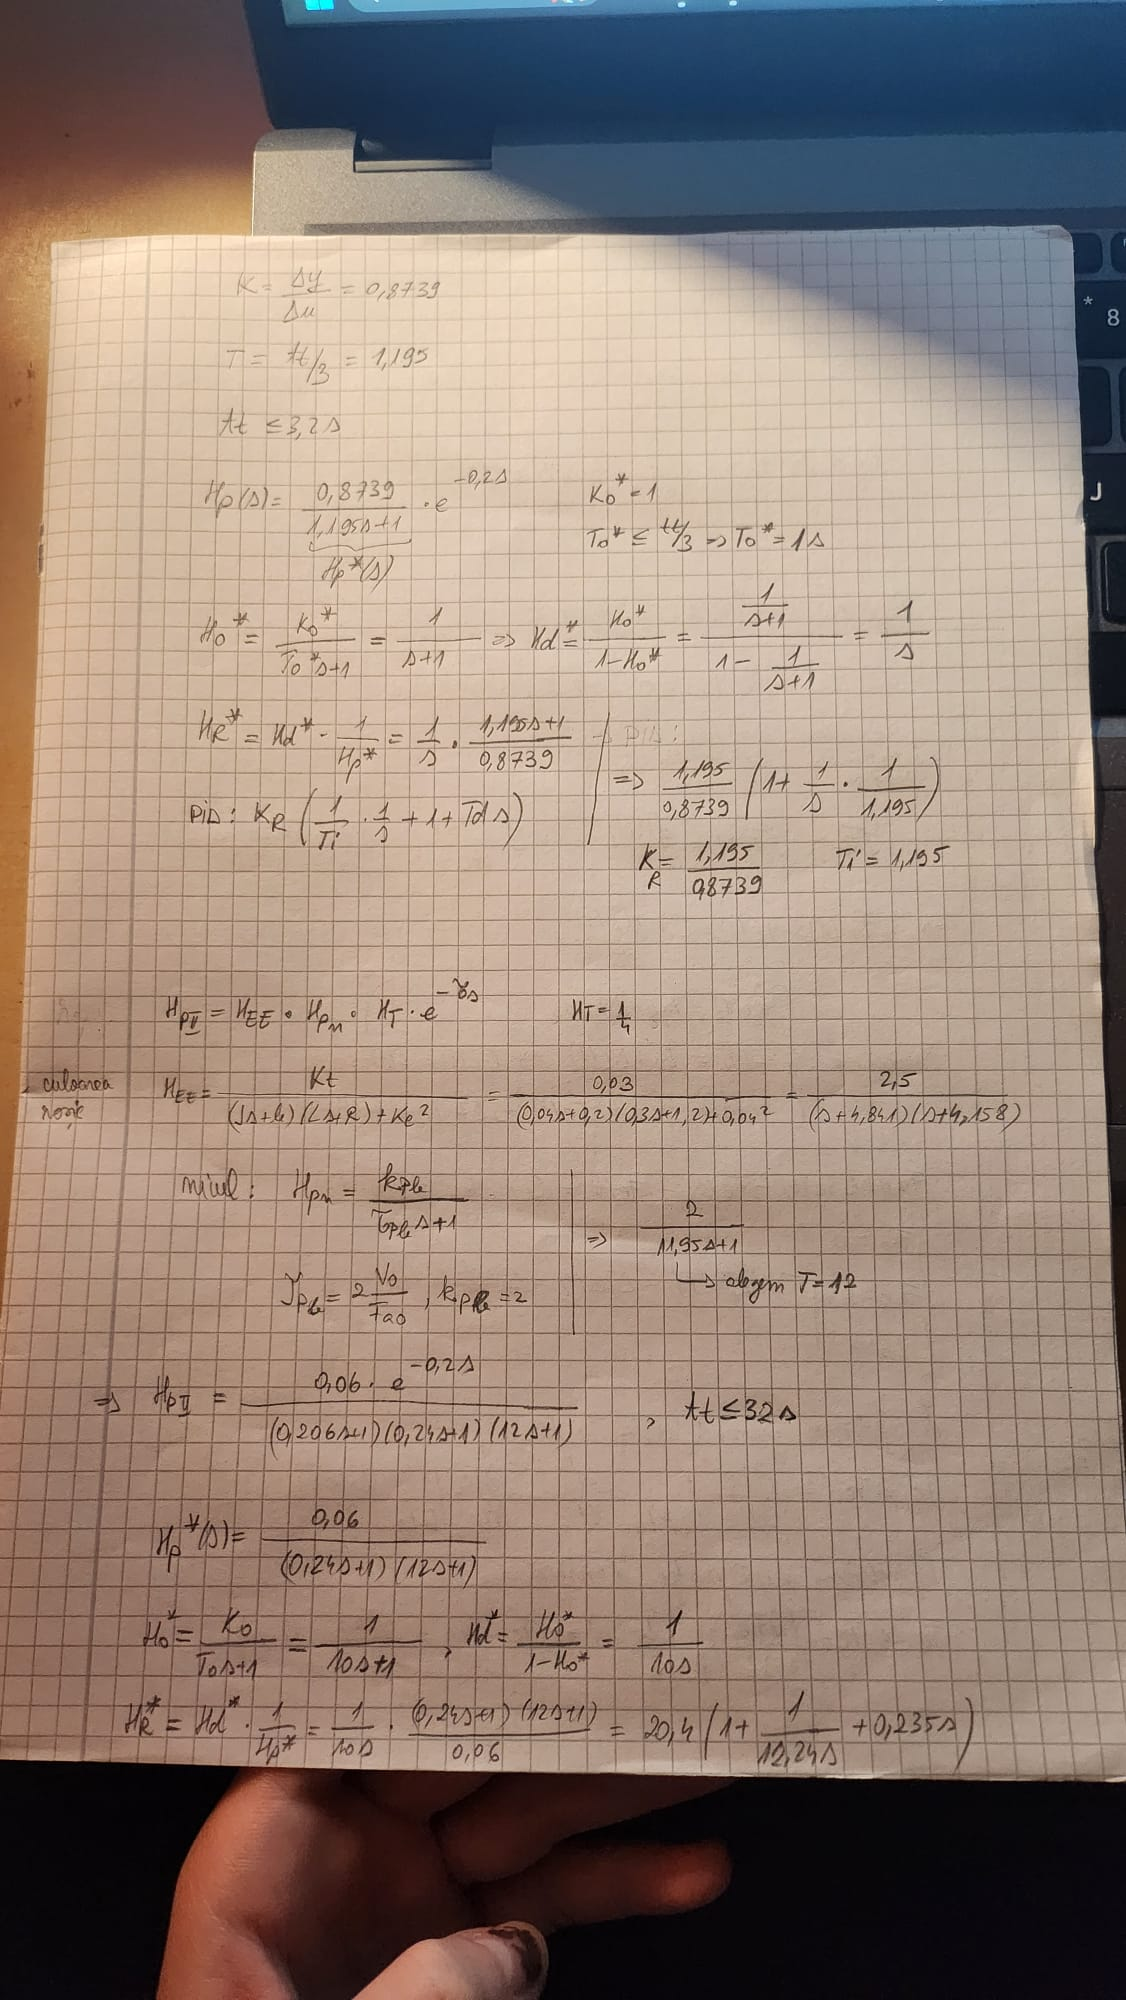 K = Δy/Δu = 0,8739
T = tt/3 = 1,195
tt ≤ 3,2s
Hp(s) = 0,8739/(1,195s+1) · e^(-0,2s)    K0* = 1
Hp*(s)    T0* ≤ tt/3 => T0* = 1s
H0* = K0*/(T0*s+1) = 1/(s+1) => Hd* = H0*/(1-H0*) = (1/(s+1))/(1 - 1/(s+1)) = 1/s
HR* = Hd* · 1/Hp* = 1/s · (1,195s+1)/0,8739    → PID:
=> 1,195/0,8739 (1 + 1/s · 1/1,195)
PID: KR (1/Ti · 1/s + 1 + Td s)
KR = 1,195/0,8739    Ti = 1,195
HpII = HEE · Hpn · HT · e^(-τs)    HT = 1/4
culoarea
HEE = Kt/((Js+b)(Ls+R)+Ke²) = 0,03/((0,04s+0,2)(0,3s+1,2)+0,04²) = 2,5/((s+4,841)(s+4,158))
nivel: Hpn = kpb/(Tpb s+1)    => 2/(11,95s+1)
↳ alegem T = 12
Tpb = 2 V0/Fa0, kpb = 2
=> HpII = 0,06 · e^(-0,2s)/((0,206s+1)(0,24s+1)(12s+1)), tt ≤ 32s
Hp*(s) = 0,06/((0,24s+1)(12s+1))
H0* = K0/(T0s+1) = 1/(10s+1), Hd* = H0*/(1-H0*) = 1/(10s)
HR* = Hd* · 1/Hp* = 1/(10s) · (0,24s+1)(12s+1)/0,06 = 20,4 (1 + 1/(12,24s) + 0,235s)
8
J